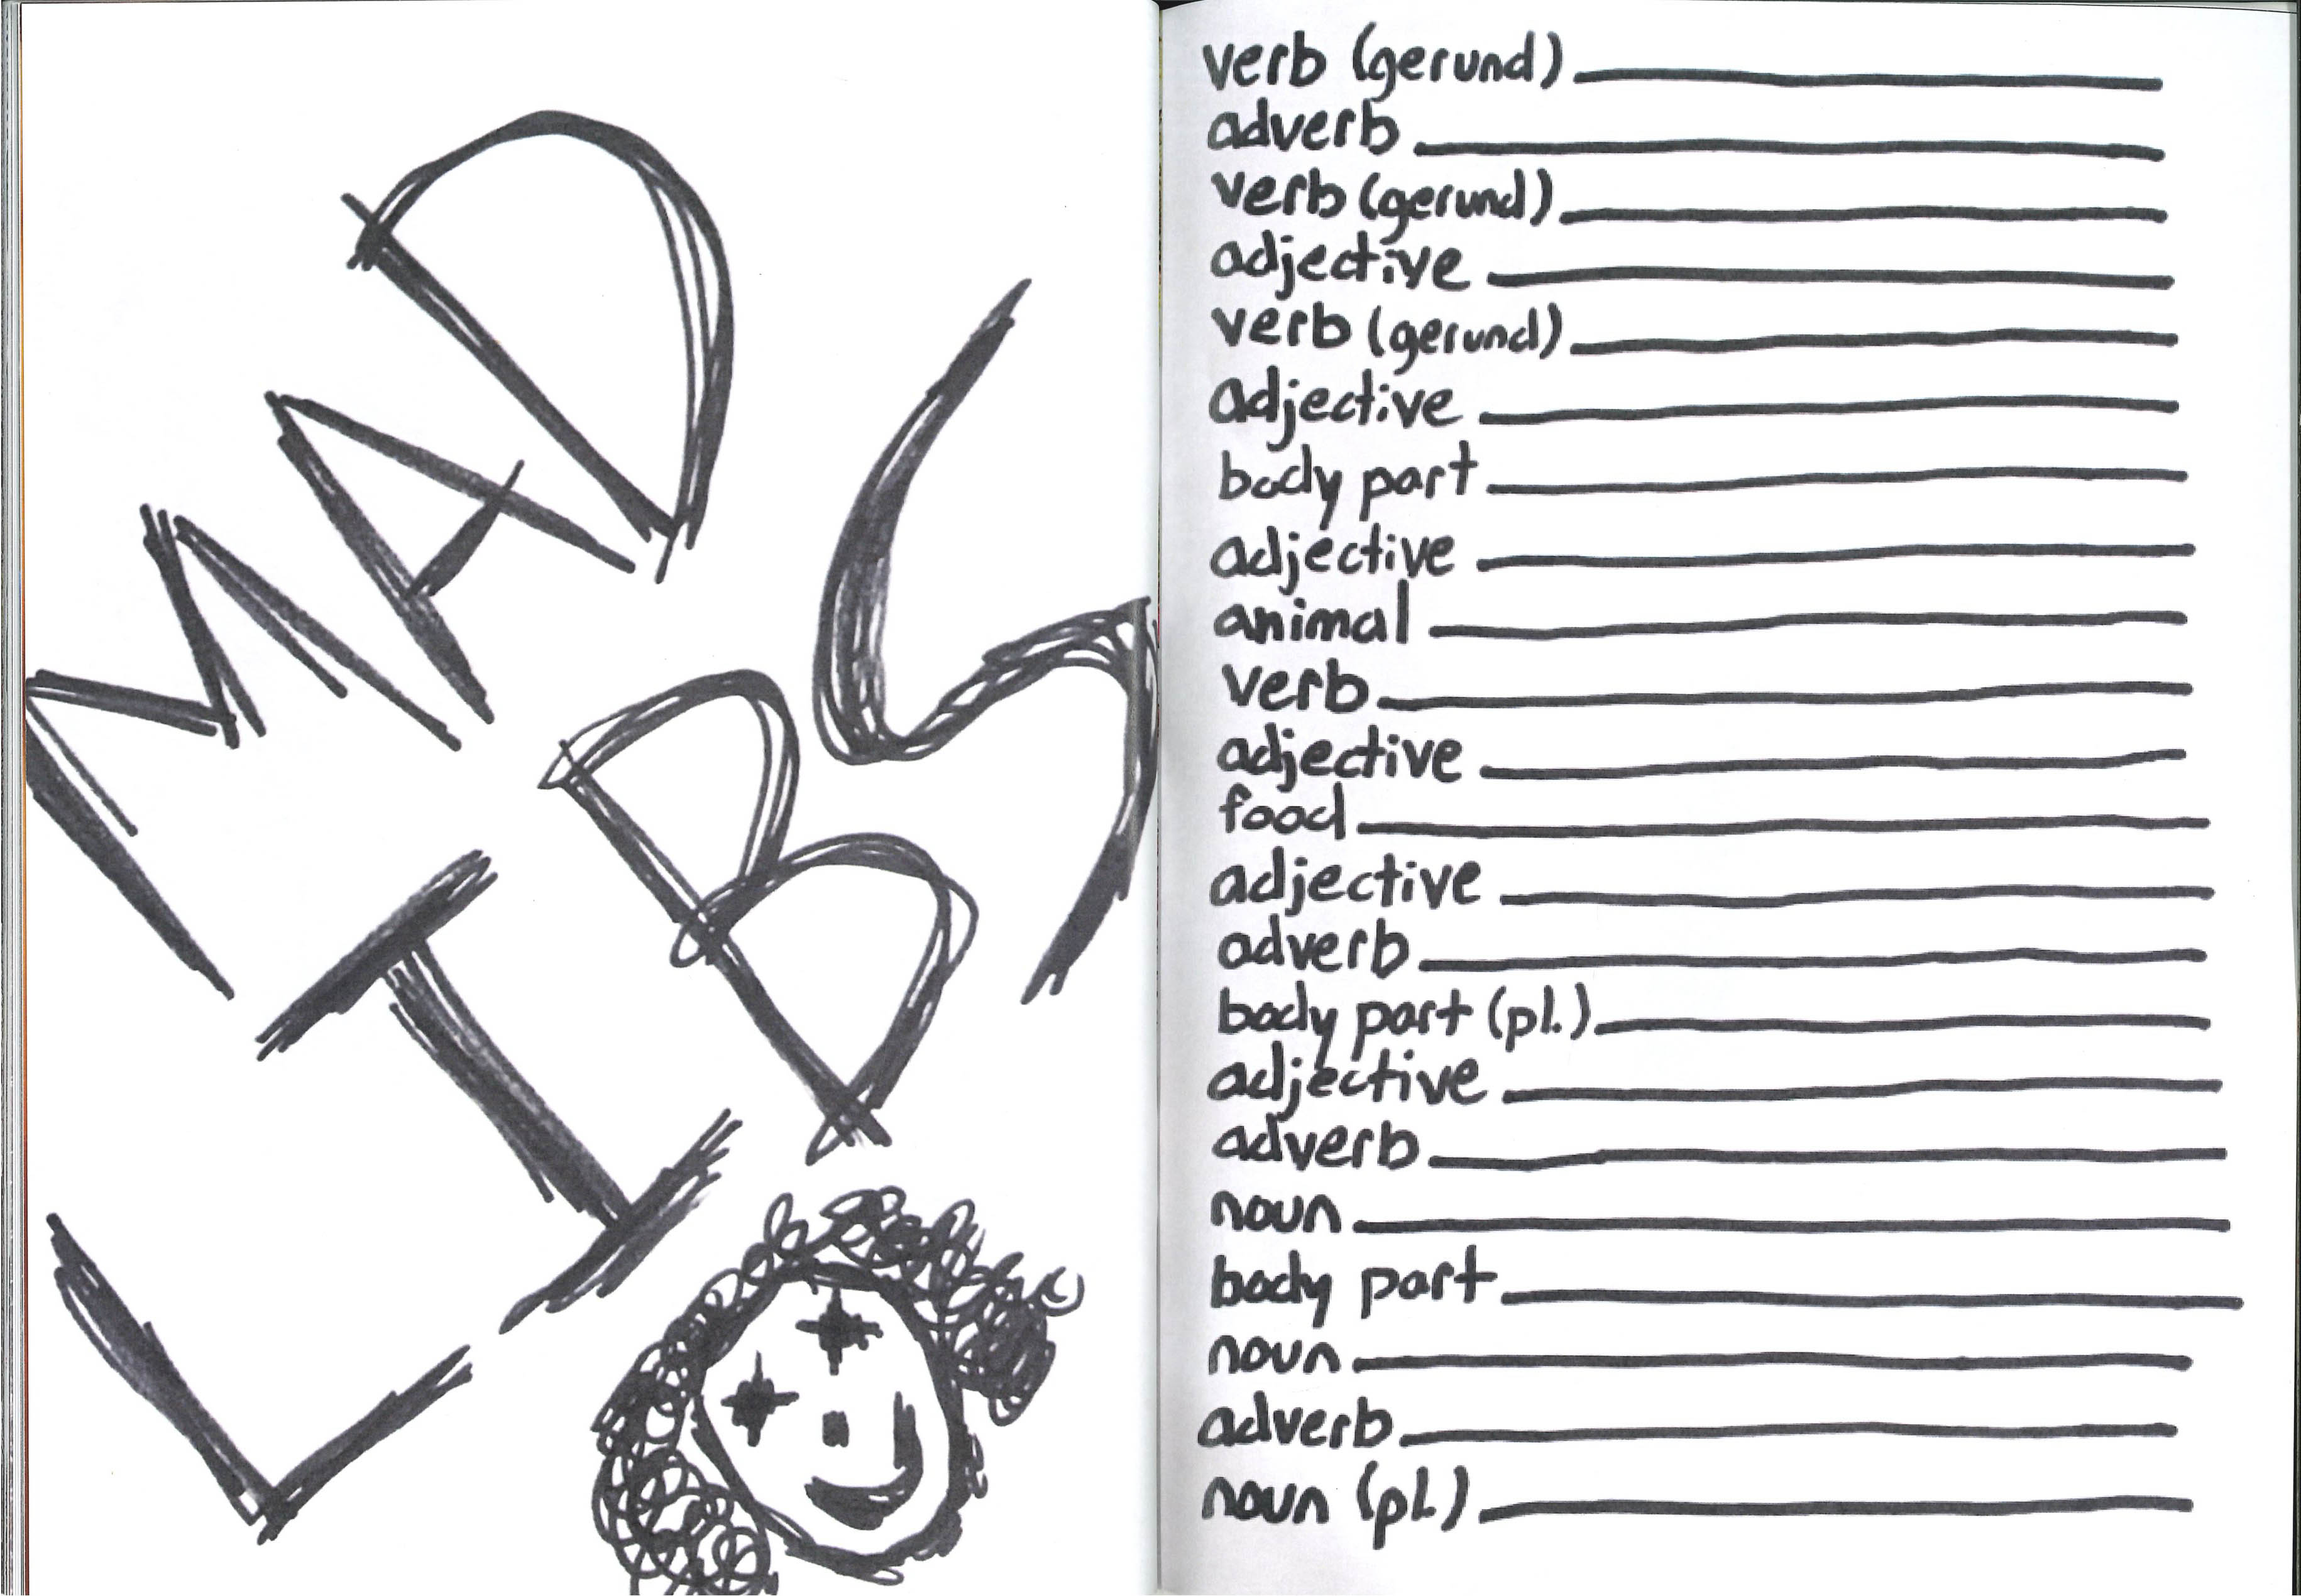 MAD
LIBS
verb (gerund)
adverb
verb (gerund)
adjective
verb (gerund)
adjective
body part
adjective
animal
verb
adjective
food
adjective
adverb
body part (pl.)
adjective
adverb
noun
body part
noun
adverb
noun (pl.)